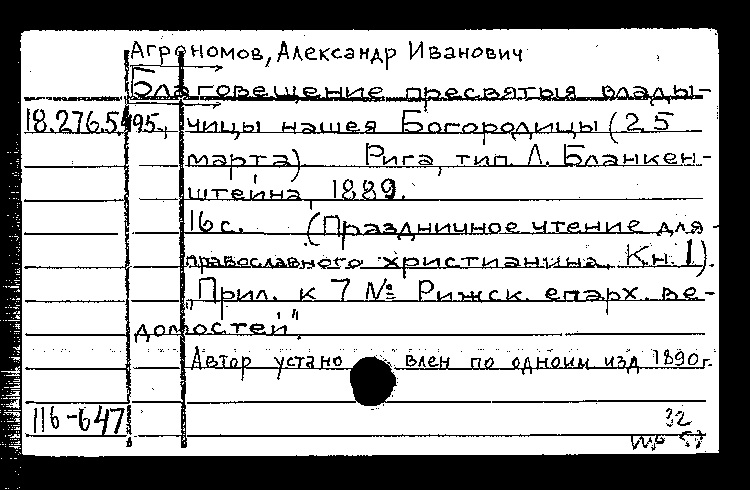 Агрономов, Александр Иванович
Благовещение пресвятыя влады-
18.276.5.195., чицы нашея Богородицы (25
марта) Рига, тип. Л. Бланкен-
штейна, 1889.
16 с. (Праздничное чтение для
православного христианина. Кн. 1).
"Прил. к 7 № Рижск. епарх. ве-
домостей".
Автор установлен по одноим изд 1890г.
116-647 32
57